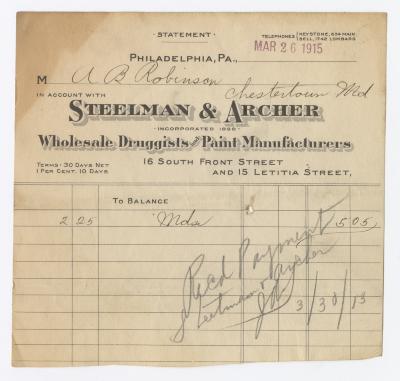 STATEMENT
TELEPHONES KEYSTONE, 634 MAIN
BELL, 1742 LOMBARD
MAR 26 1915
PHILADELPHIA, PA.,
M A B Robinson
Chestertown Md
IN ACCOUNT WITH
STEELMAN & ARCHER
INCORPORATED 1898
Wholesale Druggists and Paint Manufacturers
TERMS: 30 DAYS NET
1 PER CENT. 10 DAYS
16 SOUTH FRONT STREET
AND 15 LETITIA STREET,
TO BALANCE
2 25 Mdse 5 05
Recd Payment
Steelman & Archer
3/30/15